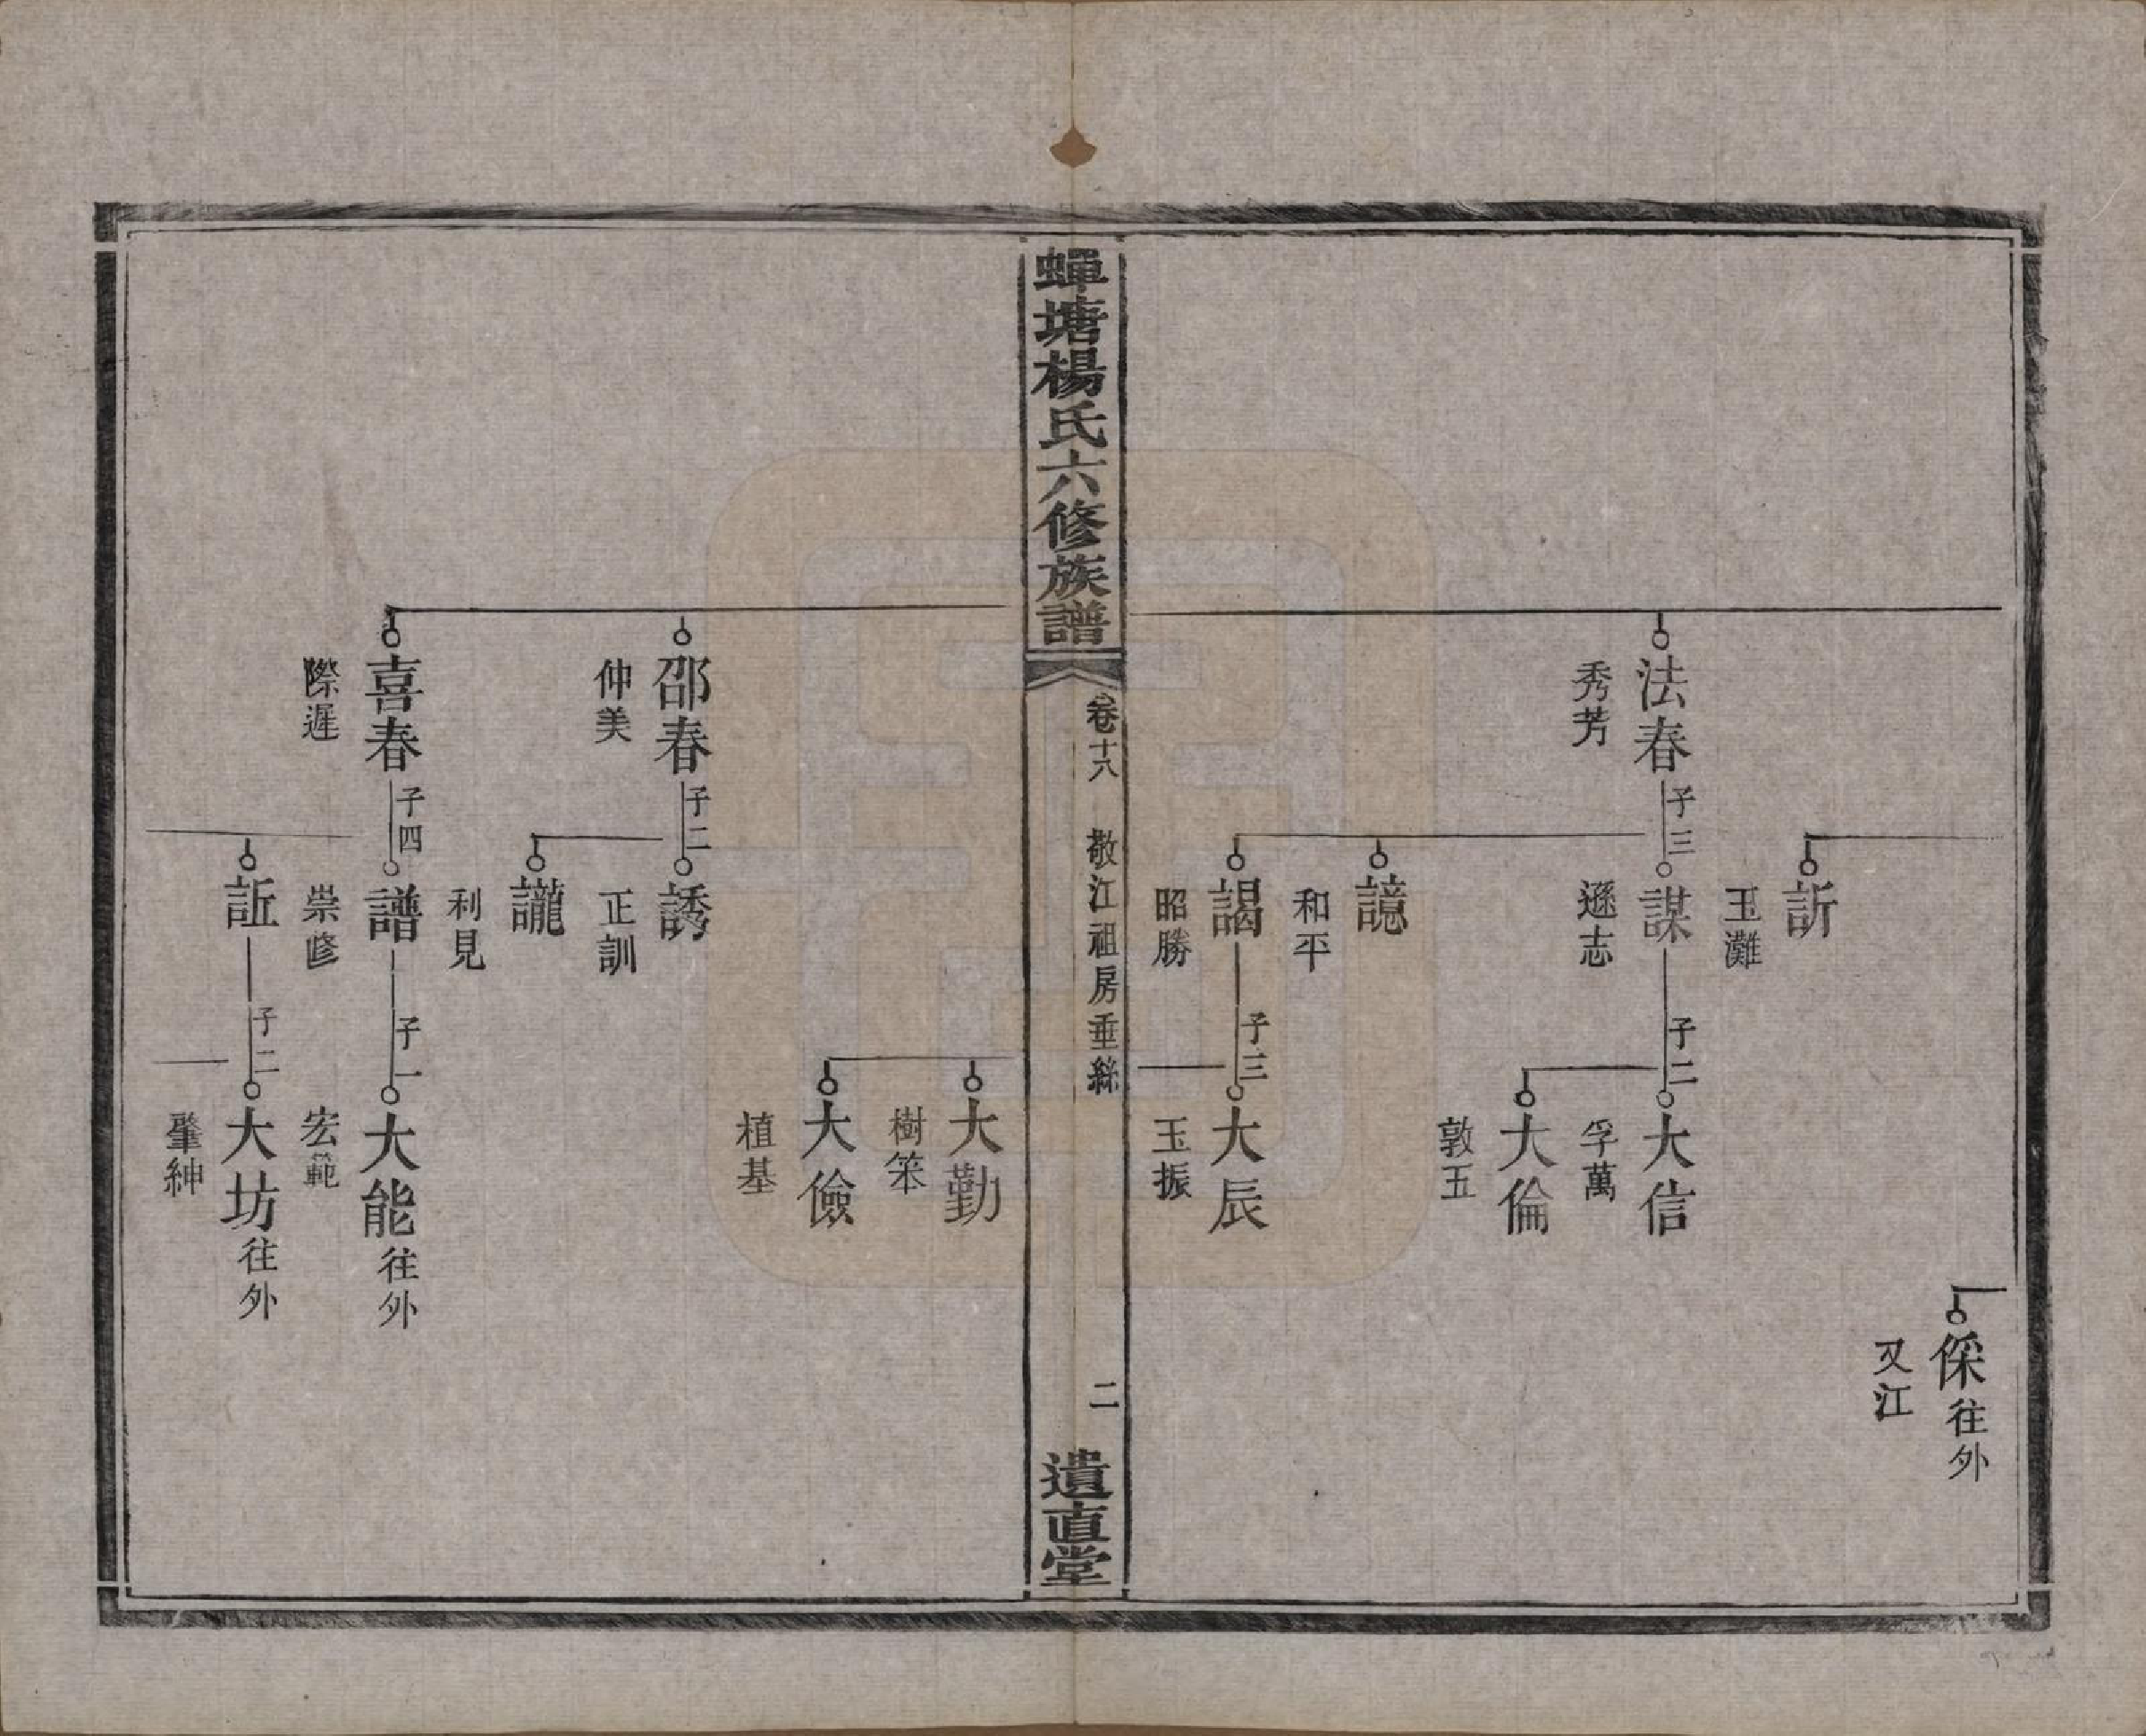 傺往外
又江
訢
玉灘
法春
秀芳
子三
謀
遜志
子二
大信
孚萬
大倫
敦五
譩
和平
謁
昭勝
子三
大辰
玉振
蟬塘楊氏六修族譜
卷十六
敬江祖房垂絲
二
遺直堂
大勤
樹笨
大儉
植基
邵春
仲美
子二
誘
正訓
讞
利見
喜春
際遲
子四
譜
崇修
子一
大能往外
宏範
訨
子二
大坊往外
肇紳